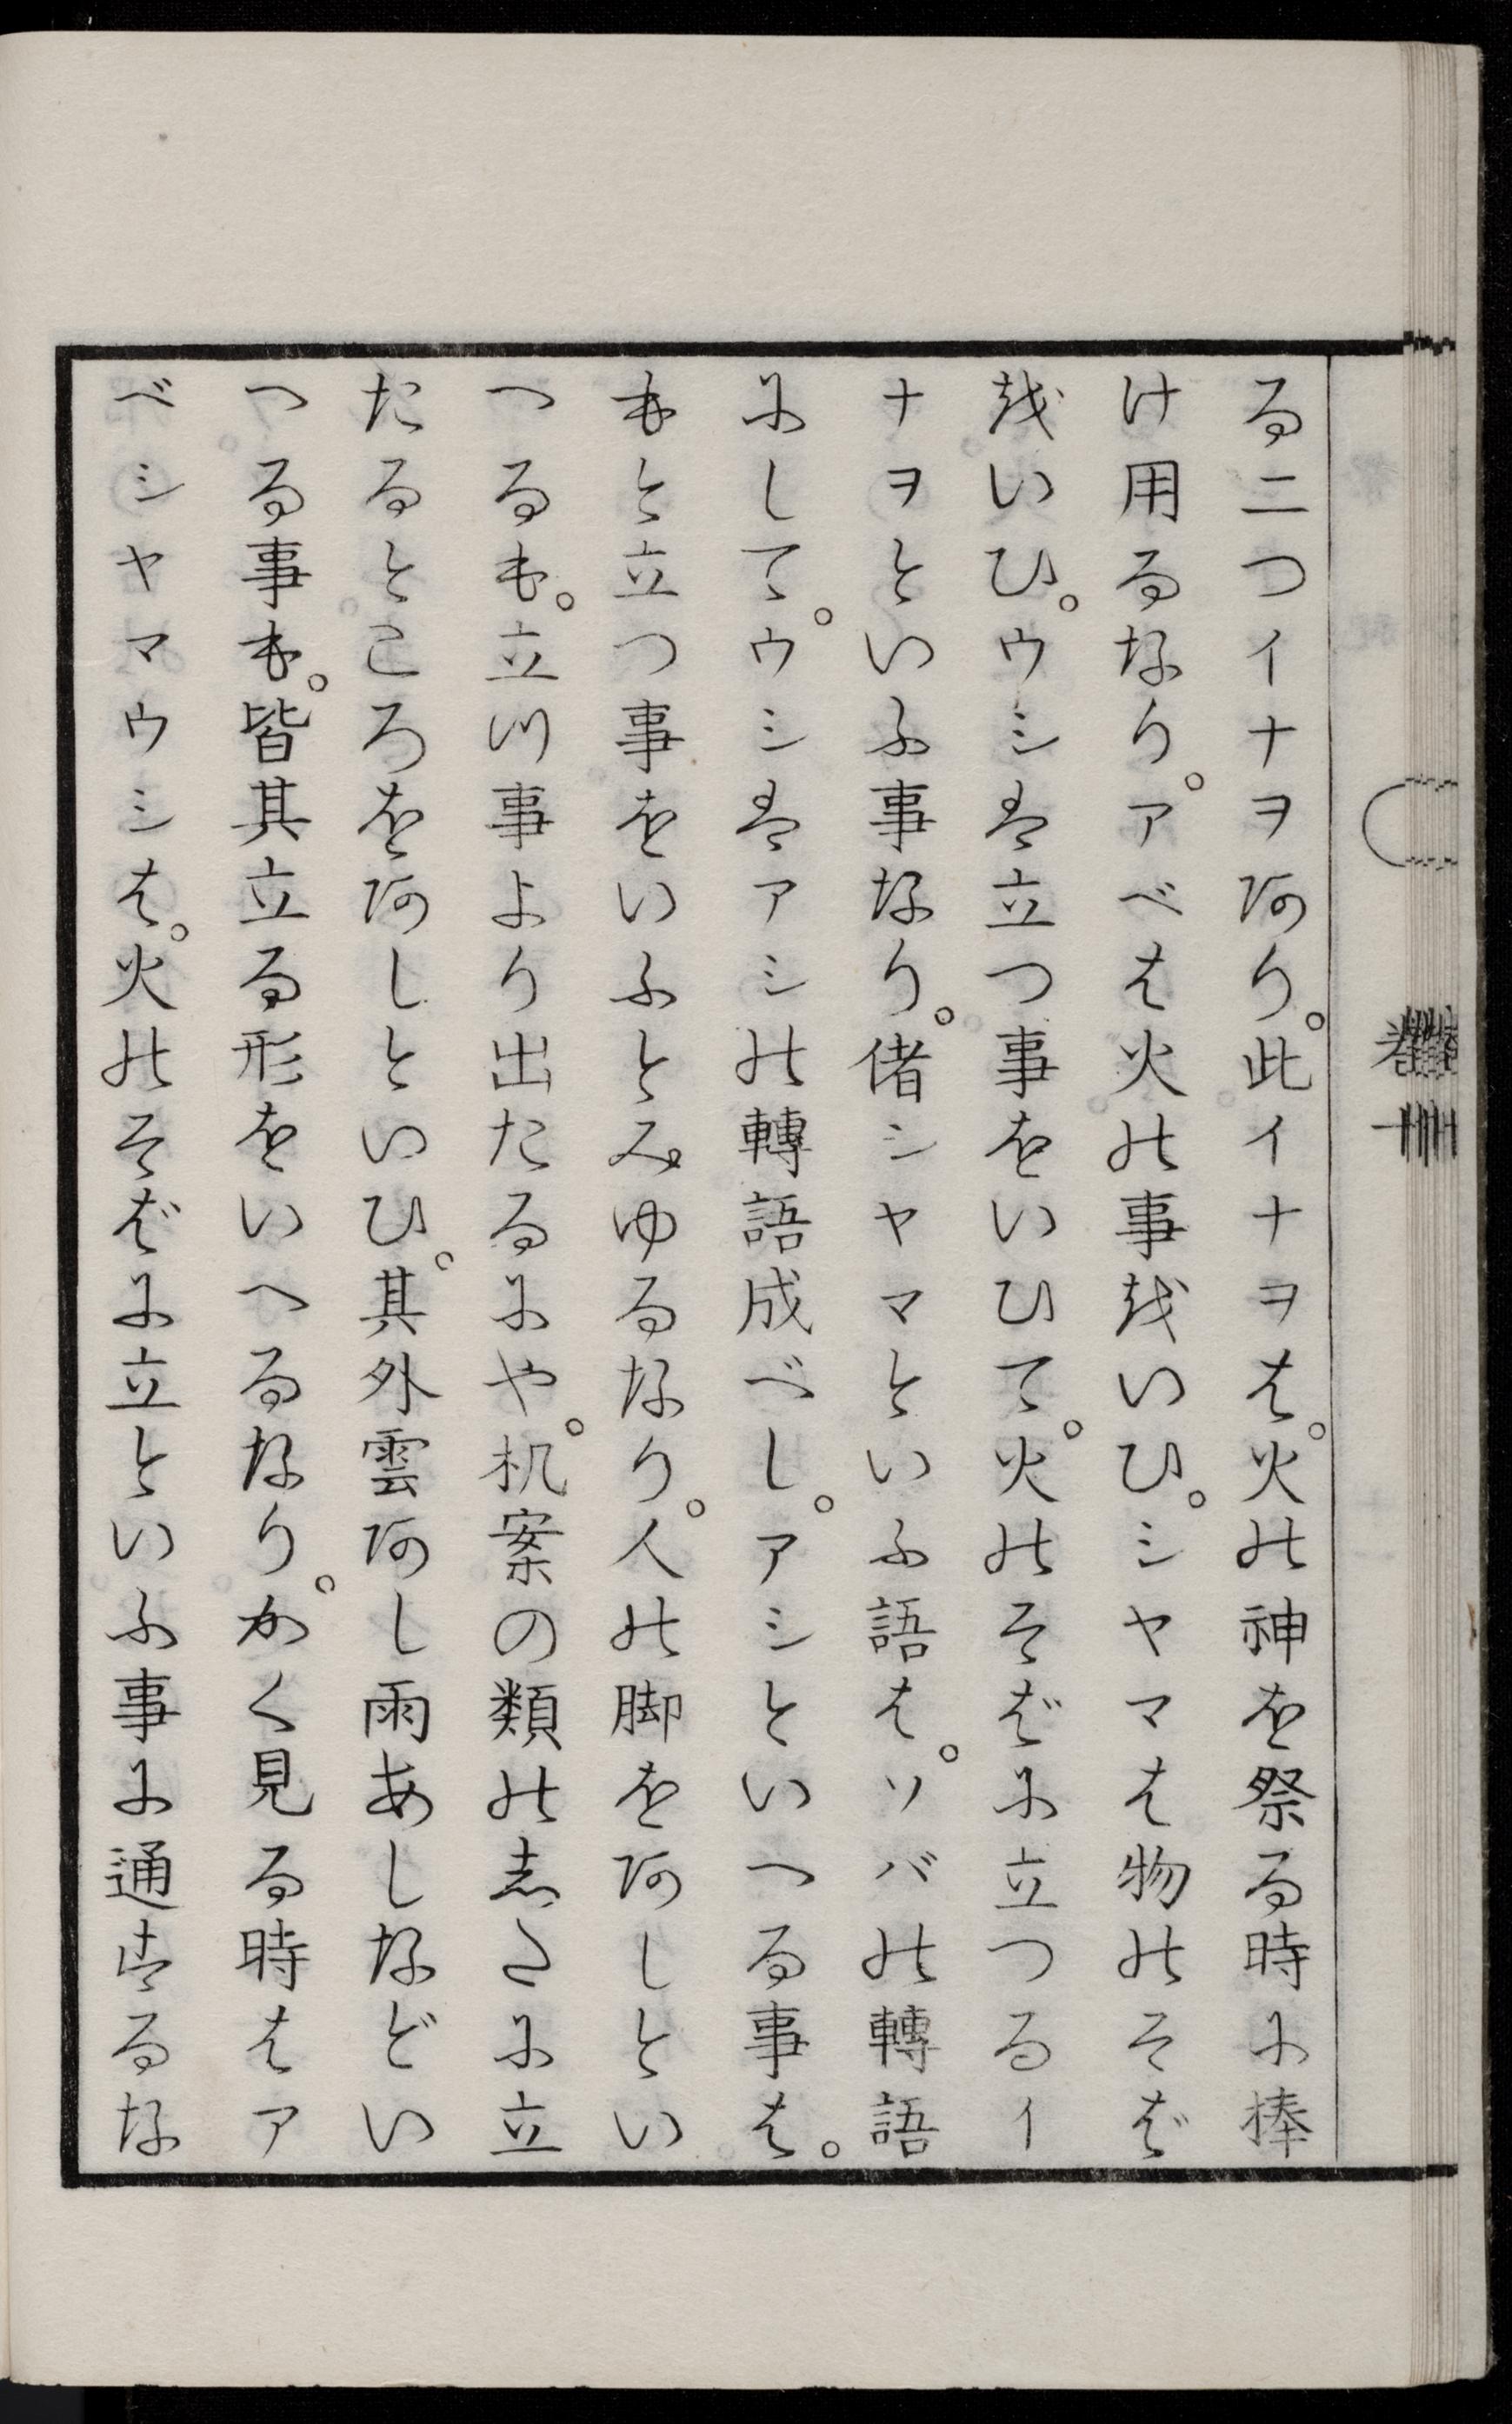 る二つイナヲあり。此イナヲは。火の神を祭る時に捧
け用るなり。アベは火の事をいひ。シヤマは物のそば
をいひ。ウシは立つ事をいひて。火のそばに立つるイ
ナヲといふ事なり。偖シヤマといふ語は。ソバの轉語
にして。ウシはアシの轉語成べし。アシといへる事は。
もと立つ事をいふとみゆるなり。人の脚をあしとい
へるも。立つ事より出たるにや。机案の類のしたに立
たるところをあしといひ。其外雲あし雨あしなどい
へる事も。皆其立る形をいへるなり。かく見る時はア
ベシヤマウシは。火のそばに立といふ事に通するな